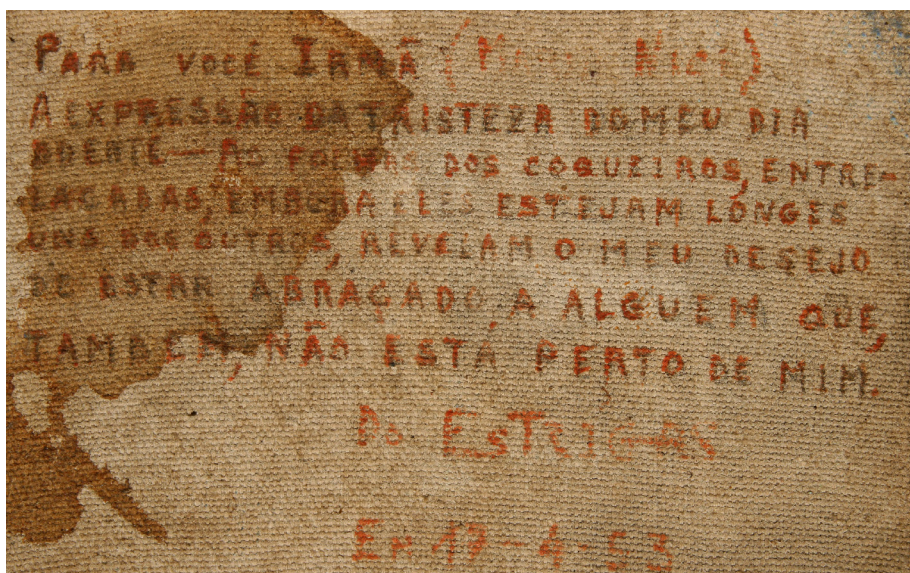 PARA VOCÊ IRMÃ (
A EXPRESSÃO DA TRISTEZA DO MEU DIA
DOENTE — AS FORMAS DOS COQUEIROS, ENTRE-
LAÇADAS, EMBORA ELES ESTEJAM LONGES
UNS DOS OUTROS, REVELAM O MEU DESEJO
DE ESTAR ABRAÇADO A ALGUEM QUE,
TAMBEM, NÃO ESTÁ PERTO DE MIM.
DO ESTRIGAS
EM 17-4-53